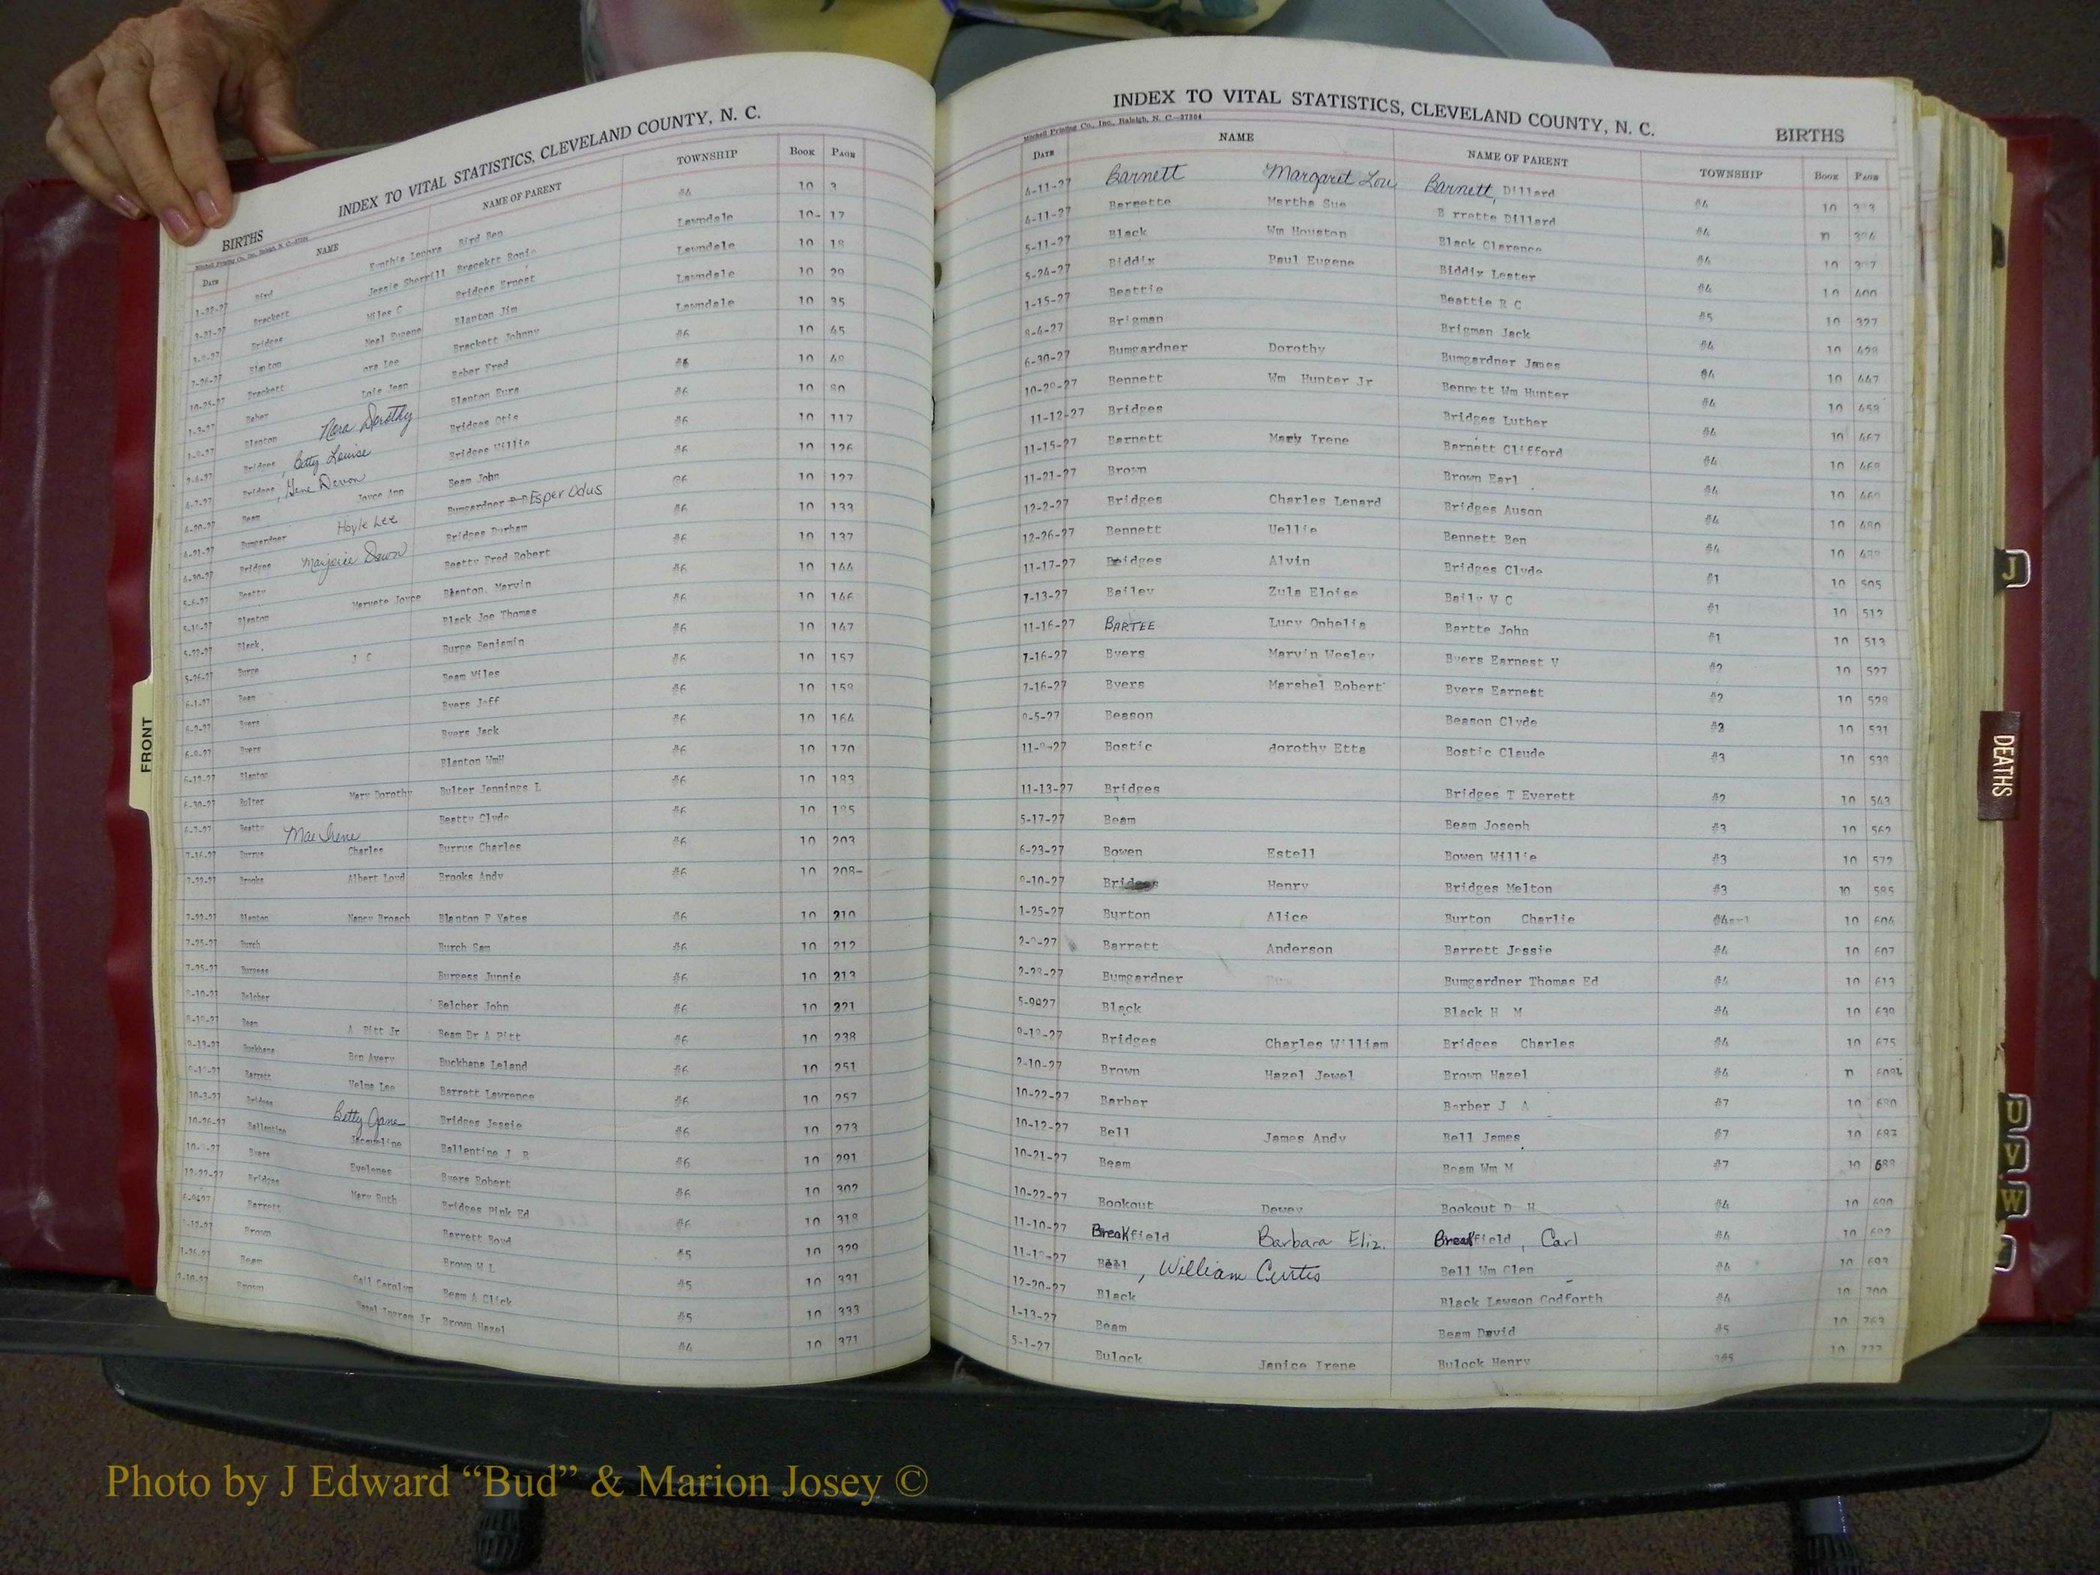 INDEX TO VITAL STATISTICS, CLEVELAND COUNTY, N. C.
BIRTHS
DATE NAME NAME OF PARENT TOWNSHIP BOOK PAGE
Bird Bird Ben #4 10 3
Brackett Jessie Sherrill Bracektt Ronie Lawndale 10- 17
Bridges Miles C Bridges Ernest Lawndale 10 18
Blanton Noel Eugene Blanton Jim Lawndale 10 29
Brackett ora Lee Brackett Johnny Lawndale 10 35
Lois Jean Fred #6 10 45
Blanton Nora Dorothy Blanton Eura #6 10 49
Bridges, Betty Louise Bridges Otis #6 10 80
Bridges, Gene Devon Bridges Willie #6 10 117
Beam Joyce Ann Beam John #6 10 126
Bumgardner Hoyle Lee Bumgardner Esper Odus 10 127
Bridges Marjorie Dawn Bridges Durham #6 10 133
Beatty Beatty Fred Robert #6 10 137
Blanton Joyce Blanton, Marvin #6 10 144
Black, Black Joe Thomas #6 10 146
Burge J C Burge Benjamin #6 10 147
Beam Beam Miles #6 10 157
Byers Byers Jeff #6 10 159
Byers Byers Jack #6 10 164
Blanton Blanton WmH #6 10 170
Bulter Mary Dorothy Bulter Jennings L #6 10 183
Beatty Mae Irene Beatty Clyde #6 10 195
7-16-27 Burrus Charles Burrus Charles #6 10 203
7-22-27 Brooks Albert Loyd Brooks Andy #6 10 208-
7-22-27 Blanton Nancy Broach Blanton F Yates #6 10 210
7-25-27 Burch Burch Sam #6 10 212
7-25-27 Burgess Burgess Junnie #6 10 213
Belcher Belcher John #6 10 221
Beam A Pitt Jr Beam Dr A Pitt #6 10 238
Buckhana Ben Avery Buckhana Leland #6 10 251
Barrett Velma Lee Barrett Lawrence #6 10 257
10-3-27 Bridges Betty Jane Bridges Jessie #6 10 273
10-26-27 Ballentine Jacqueline Ballentine J R #6 10 291
Byers Evelenes Byers Robert #6 10 302
12-22-27 Bridges Mary Ruth Bridges Pink Ed #6 10 318
Barrett Barrett Boyd #5 10 329
Brown Brown W L #5 10 331
Beam Gail Carolyn Beam A Click #5 10 333
Brown Hazel Ingram Jr Brown Hazel #4 10 371
FRONT
INDEX TO VITAL STATISTICS, CLEVELAND COUNTY, N. C.
Mitchell Printing Co., Inc., Raleigh, N. C.—37204
BIRTHS
DATE NAME NAME OF PARENT TOWNSHIP BOOK PAGE
4-11-27 Barnett Margaret Lou Barnett, Dillard #4 10
4-11-27 Barrette Martha Sue B rrette Dillard #4 394
5-11-27 Black Wm Houston Black Clarence #4 10
5-24-27 Biddix Paul Eugene Biddix Lester #4 10 400
1-15-27 Beattie Beattie R C #5 10 327
8-4-27 Brigman Brigman Jack #4 10 428
6-30-27 Bumgardner Dorothy Bumgardner James #4 10 447
10-29-27 Bennett Wm Hunter Jr Bennett Wm Hunter #4 10 458
11-12-27 Bridges Bridges Luther #4 10 467
11-15-27 Barnett Mary Irene Barnett Clifford #4 10 468
11-21-27 Brown Brown Earl #4 10 469
12-2-27 Bridges Charles Lenard Bridges Auson #4 10 480
12-26-27 Bennett Uellie Bennett Ben #4 10
11-17-27 Bridges Alvin Bridges Clyde #1 10 505
7-13-27 Bailey Zula Eloise Baily V C #1 10 512
11-16-27 BARTEE Lucy Ophelia Bartte John #1 10 513
7-16-27 Byers Marvin Wesley Byers Earnest V #2 10 527
7-16-27 Byers Marshel Robert Byers Earnest #2 10 528
9-5-27 Beason Beason Clyde #2 10 531
11-9-27 Bostic dorothy Etta Bostic Claude #3 10 538
11-13-27 Bridges Bridges T Everett #2 10 543
5-17-27 Beam Beam Joseph #3 10 562
6-23-27 Bowen Estell Bowen Willie #3 10 572
9-10-27 Bridges Henry Bridges Melton #3 10 585
1-25-27 Burton Alice Burton Charlie #4 10 604
2-9-27 Barrett Anderson Barrett Jessie #4 10 607
2-28-27 Bumgardner Bumgardner Thomas Ed #4 10 613
5-9027 Black Black H M #4 10 639
9-19-27 Bridges Charles William Bridges Charles #4 10 675
2-10-27 Brown Hazel Jewel Brown Hazel #4
10-22-27 Barber Barber J A #7 10 680
10-12-27 Bell James Andy Bell James #7 10 683
10-21-27 Beam Beam Wm M #7 10 688
10-22-27 Bookout Dewey Bookout D H #4 10 690
11-10-27 Breakfield Barbara Eliz. Breakfield, Carl #4 10 692
11-19-27 Bell, William Curtis Bell Wm Glen #4 10 693
12-20-27 Black Black Lawson Godforth #4 10 700
1-13-27 Beam Beam David #5 10 763
5-1-27 Bulock Janice Irene Bulock Henry #5 10 777
J
DEATHS
U
V
W
Photo by J Edward “Bud” & Marion Josey ©